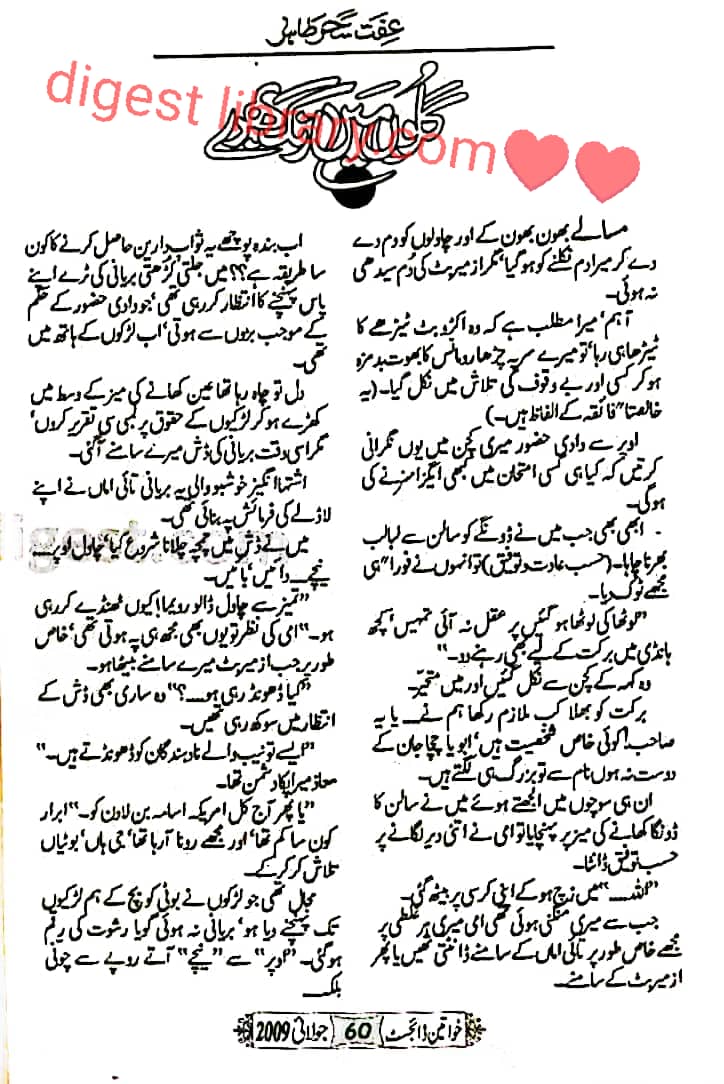 عِفَت سحر طاہر
گلوں میں رنگ بھرے
digest library.com
مسالے بھون بھون کے اور چاولوں کو دم دے
دے کر میرا دم نکلنے کو ہو گیا‘ مگر ازمیر بٹ کی دُم سیدھی
نہ ہوئی۔
آہم‘ میرا مطلب ہے کہ وہ اکڑو بٹ ٹیڑھے کا
ٹیڑھا ہی رہا‘ تو میرے سر پہ چڑھا رومانس کا بھوت بدمزہ
ہو کر کسی اور بے وقوف کی تلاش میں نکل گیا۔ (یہ
خالصتا" فائقہ کے الفاظ ہیں۔)
اوپر سے دادی حضور میری کچن میں یوں نگرانی
کرتیں کہ کیا ہی کسی امتحان میں کبھی ایگزامنر نے کی
ہوگی۔
ابھی بھی جب میں نے ڈونگے کو سالن سے لبالب
بھرنا چاہا۔ (حسب عادت و توفیق) تو انہوں نے فورا" ہی
مجھے ٹوک دیا۔
"لوٹھا کی لوٹھا ہو گئیں پر عقل نہ آئی تمہیں‘ کچھ
ہانڈی میں برکت کے لیے بھی رہنے دو۔"
وہ کہہ کے کچن سے نکل گئیں اور میں متحیر۔
برکت کو بھلا کب ملازم رکھا ہم نے.... یا یہ
صاحب کوئی خاص شخصیت ہیں‘ ابو یا چچا جان کے
دوست نہ ہوں نام سے تو بزرگ ہی لگتے ہیں۔
ان ہی سوچوں میں الجھتے ہوئے میں نے سالن کا
ڈونگا کھانے کی میز پر پہنچایا تو امی نے اتنی دیر لگانے پر
حسب توفیق ڈانٹا۔
"اللہ...." میں زچ ہو کے اپنی کرسی پر بیٹھ گئی۔
جب سے میری منگنی ہوئی تھی امی میری ہر غلطی پر
مجھے خاص طور پر تائی اماں کے سامنے ڈانٹتی تھیں یا پھر
ازمیر بٹ کے سامنے۔
اب بندہ پوچھے یہ ثواب دارین حاصل کرنے کا کون
سا طریقہ ہے؟؟ میں جلتی کڑھتی بریانی کی ٹرے اپنے
پاس پہنچنے کا انتظار کر رہی تھی‘ جو دادی حضور کے حکم
کے موجب بڑوں سے ہوتی‘ اب لڑکوں کے ہاتھ میں
تھی۔
دل تو چاہ رہا تھا عین کھانے کی میز کے وسط میں
کھڑے ہو کر لڑکیوں کے حقوق پر لمبی سی تقریر کروں‘
مگر اسی وقت بریانی کی ڈش میرے سامنے آگئی۔
اشتہا انگیز خوشبو والی یہ بریانی تائی اماں نے اپنے
لاڈلے کی فرمائش پہ بنائی تھی۔
میں نے ڈش میں چمچہ چلانا شروع کیا‘ چاول اوپر....
نیچے.... دائیں‘ بائیں۔
"تمیز سے چاول ڈالو رویما! کیوں ٹھنڈے کر رہی
ہو۔" امی کی نظر تو یوں بھی مجھ ہی پہ ہوتی تھی‘ خاص
طور پر جب ازمیر بٹ میرے سامنے بیٹھا ہو۔
"کیا ڈھونڈ رہی ہو....؟" وہ ساری بھی ڈش کے
انتظار میں سوکھ رہی تھیں۔
"ایسے تو نیب والے نادہندگان کو ڈھونڈتے ہیں۔"
معاذ میرا پکا دشمن تھا۔
"یا پھر آج کل امریکہ اسامہ بن لادن کو۔" ابرار
کون سا کم تھا‘ اور مجھے رونا آرہا تھا‘ جی ہاں‘ بوٹیاں
تلاش کر کر کے۔
مجال تھی جو لڑکوں نے بوٹی کو بچ کے ہم لڑکیوں
تک پہنچنے دیا ہو‘ بریانی نہ ہوئی گویا رشوت کی رقم
ہو گئی۔ "اوپر" سے "نیچے" آتے روپے سے چونی
بلکہ
خواتین ڈائجسٹ 60 جولائی 2009